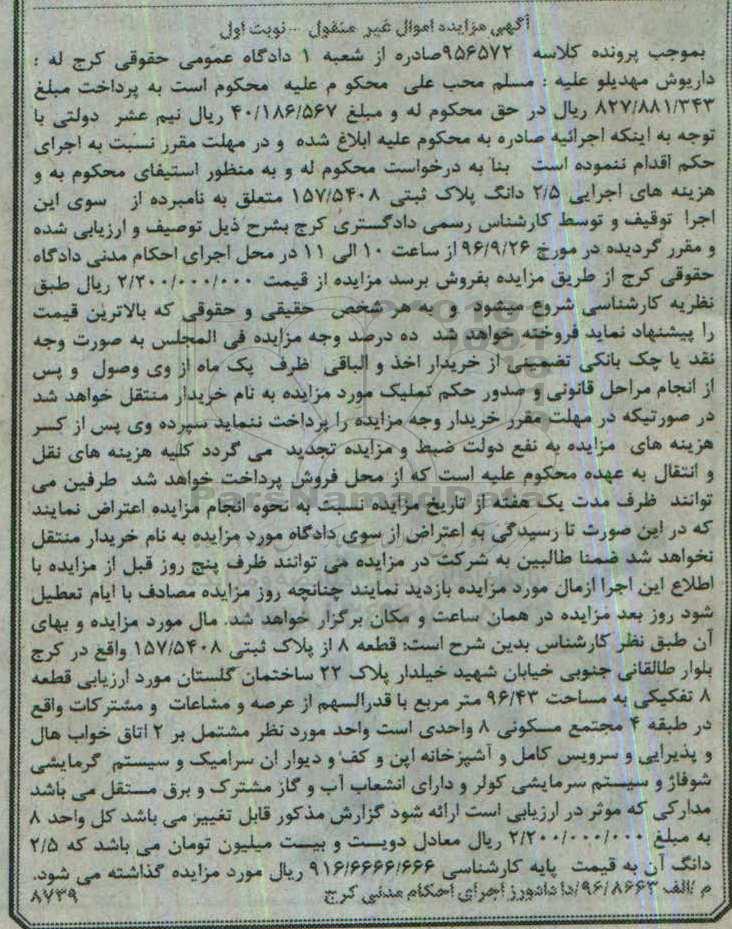 آگهی مزایده اموال غیر منقول ... نوبت اول
بموجب پرونده کلاسه ۹۵۶۵۷۲صادره از شعبه ۱ دادگاه عمومی حقوقی کرج له :
داریوش مهدیلو علیه : مسلم محب علی محکو م علیه محکوم است به پرداخت مبلغ
۸۲۷/۸۸۱/۳۴۳ ریال در حق محکوم له و مبلغ ۴۰/۱۸۶/۵۶۷ ریال نیم عشر دولتی با
توجه به اینکه اجرائیه صادره به محکوم علیه ابلاغ شده و در مهلت مقرر نسبت به اجرای
حکم اقدام ننموده است بنا به درخواست محکوم له و به منظور استیفای محکوم به و
هزینه های اجرایی ۲/۵ دانگ پلاک ثبتی ۱۵۷/۵۴۰۸ متعلق به نامبرده از سوی این
اجرا توقیف و توسط کارشناس رسمی دادگستری کرج بشرح ذیل توصیف و ارزیابی شده
و مقرر گردیده در مورخ ۹۶/۹/۲۶ از ساعت ۱۰ الی ۱۱ در محل اجرای احکام مدنی دادگاه
حقوقی کرج از طریق مزایده بفروش برسد مزایده از قیمت ۲/۲۰۰/۰۰۰/۰۰۰ ریال طبق
نظریه کارشناسی شروع میشود و به هر شخص حقیقی و حقوقی که بالاترین قیمت
را پیشنهاد نماید فروخته خواهد شد ده درصد وجه مزایده فی المجلس به صورت وجه
نقد یا چک بانکی تضمینی از خریدار اخذ و الباقی ظرف یک ماه از وی وصول و پس
از انجام مراحل قانونی و صدور حکم تملیک مورد مزایده به نام خریدار منتقل خواهد شد
در صورتیکه در مهلت مقرر خریدار وجه مزایده را پرداخت ننماید سپرده وی پس از کسر
هزینه های مزایده به نفع دولت ضبط و مزایده تجدید می گردد کلیه هزینه های نقل
و انتقال به عهده محکوم علیه است که از محل فروش پرداخت خواهد شد طرفین می
توانند ظرف مدت یک هفته از تاریخ مزایده نسبت به نحوه انجام مزایده اعتراض نمایند
که در این صورت تا رسیدگی به اعتراض از سوی دادگاه مورد مزایده به نام خریدار منتقل
نخواهد شد ضمنا طالبین به شرکت در مزایده می توانند ظرف پنج روز قبل از مزایده با
اطلاع این اجرا ازمال مورد مزایده بازدید نمایند چنانچه روز مزایده مصادف با ایام تعطیل
شود روز بعد مزایده در همان ساعت و مکان برگزار خواهد شد. مال مورد مزایده و بهای
آن طبق نظر کارشناس بدین شرح است: قطعه ۸ از پلاک ثبتی ۱۵۷/۵۴۰۸ واقع در کرج
بلوار طالقانی جنوبی خیابان شهید خیلدار پلاک ۲۲ ساختمان گلستان مورد ارزیابی قطعه
۸ تفکیکی به مساحت ۹۶/۴۳ متر مربع با قدرالسهم از عرصه و مشاعات و مشترکات واقع
در طبقه ۴ مجتمع مسکونی ۸ واحدی است واحد مورد نظر مشتمل بر ۲ اتاق خواب هال
و پذیرایی و سرویس کامل و آشپزخانه اپن و کف و دیوار ان سرامیک و سیستم گرمایشی
شوفاژ و سیستم سرمایشی کولر و دارای انشعاب آب و گاز مشترک و برق مستقل می باشد
مدارکی که موثر در ارزیابی است ارائه شود گزارش مذکور قابل تغییر می باشد کل واحد ۸
به مبلغ ۲/۲۰۰/۰۰۰/۰۰۰ ریال معادل دویست و بیست میلیون تومان می باشد که ۲/۵
دانگ آن به قیمت پایه کارشناسی ۹۱۶/۶۶۶۶/۶۶۶ ریال مورد مزایده گذاشته می شود.
م /الف ۹۶/۸۶۶۳/دا دادورز اجرای احکام مدنی کرج
۸۷۳۹
ParsNamadData